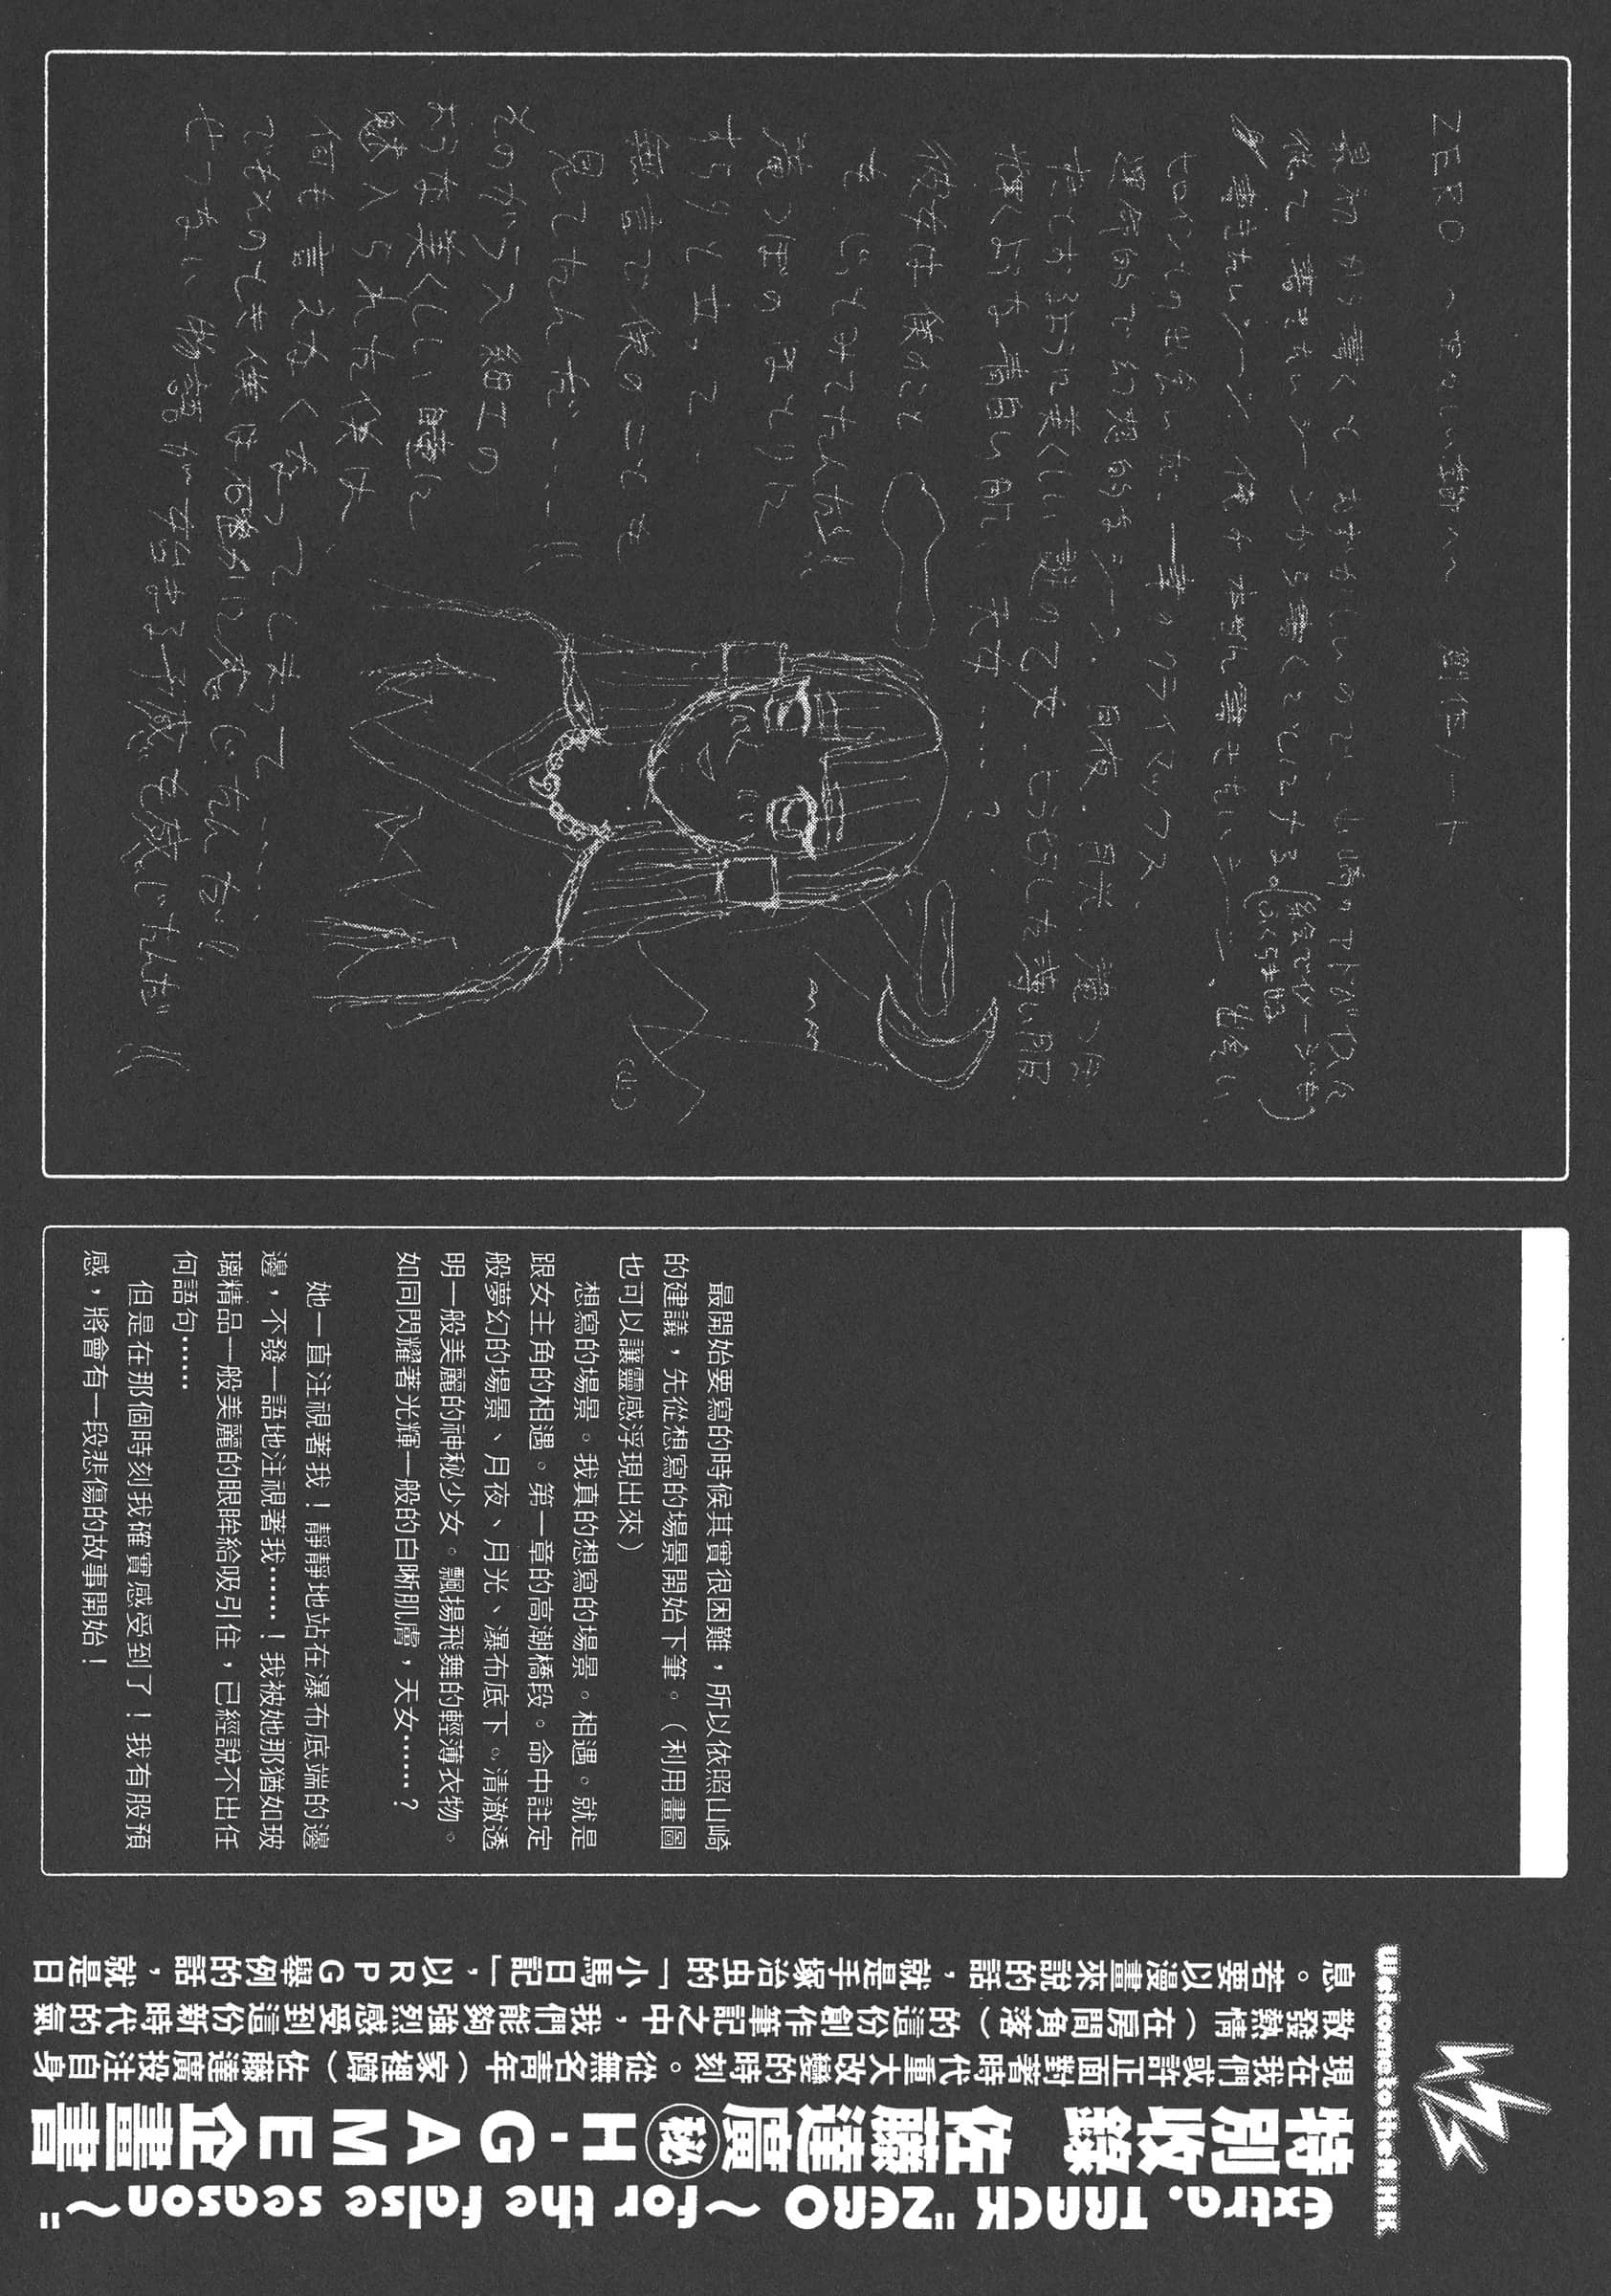 ZERO
創作ノート
最初から書くとむずかしいので、山崎のアドバイスに
書きたいシーンから書くことにする。
書きたいシーン。僕が本当に書きたいシーン、出会い
ヒロインとの出会いだ、一章のクライマックス
運命的で幻想的なシーン、月夜、月光、滝つぼ
すきとおるように美しい謎の乙女 ヒラヒラした薄い服
輝くような青白い肌、天女……?
彼女は僕のこと
を じっとみてたんだ!
滝つぼのほとりに
すらりと立って、
無言で僕のことを
見てたんだ……!!
そのガラス細工の
ような美しい瞳に
魅入られた僕は
何も言えなくなってしまって……
でもその時僕は確かに感じたんだ!
せつない物語が始まる予感を感じたんだ!!
最開始要寫的時候其實很困難，所以依照山崎
的建議，先從想寫的場景開始下筆。（利用畫圖
也可以讓靈感浮現出來）
想寫的場景。我真的想寫的場景。相遇。就是
跟女主角的相遇。第一章的高潮橋段。命中註定
般夢幻的場景、月夜、月光、瀑布底下。清澈透
明一般美麗的神秘少女。飄揚飛舞的輕薄衣物。
如同閃耀著光輝一般的白晰肌膚，天女……？
她一直注視著我！靜靜地站在瀑布底端的邊
邊，不發一語地注視著我……！我被她那猶如玻
璃精品一般美麗的眼眸給吸引住，已經說不出任
何語句……
但是在那個時刻我確實感受到了！我有股預
感，將會有一段悲傷的故事開始！
Welcome to the N.H.K
extra. TRACK "ZERO ～for the false season～"
特別收錄 佐藤達廣㊙H-GAME企畫書
現在我們或許正面對著時代重大改變的時刻。從無名青年（家裡蹲）佐藤達廣投注自身
散發熱情（在房間角落）的這份創作筆記之中，我們能夠強烈感受到這份新時代的氣
息。若要以漫畫來說的話，就是手塚治虫的「小馬日記」，以RPG舉例的話，就是日